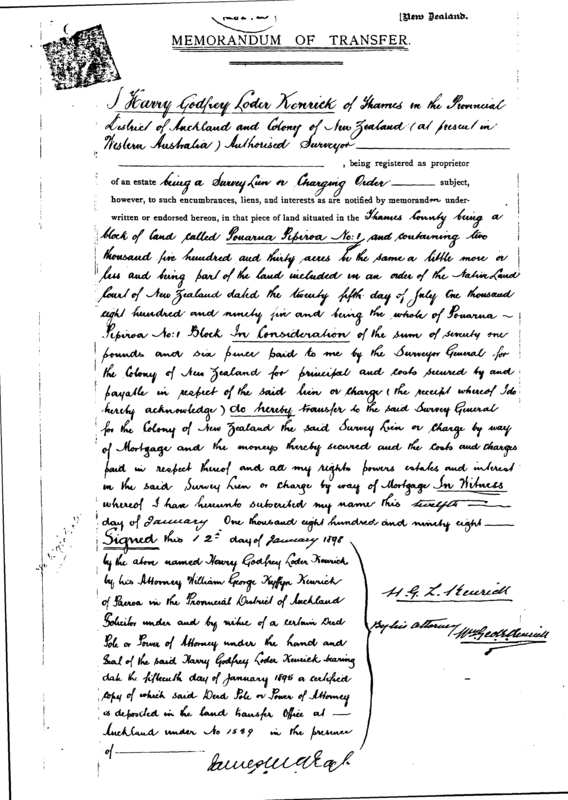 [New Zealand.
MEMORANDUM OF TRANSFER.
I Harry Godfrey Loder Kenrick of Thames in the Provincial
District of Auckland and Colony of New Zealand (at present in
Western Australia) Authorised Surveyor
, being registered as proprietor
of an estate being a Survey Lien or Charging Order subject,
however, to such encumbrances, liens, and interests as are notified by memorandum under-
written or endorsed hereon, in that piece of land situated in the Thames County being a
block of land called Pouarua Pipiroa No: 1, and containing two
thousand five hundred and thirty acres be the same a little more or
less and being part of the land included in an order of the Native Land
Court of New Zealand dated the twenty fifth day of July One thousand
eight hundred and ninety five and being the whole of Pouarua ~
Pipiroa No: 1 Block In Consideration of the sum of seventy one
pounds and six pence paid to me by the Surveyor General for
the Colony of New Zealand for principal and costs secured by and
payable in respect of the said lien or charge (the receipt whereof I do
hereby acknowledge) do hereby transfer to the said Survey General
for the Colony of New Zealand the said Survey Lien or Charge by way
of Mortgage and the moneys thereby secured and the costs and charges
paid in respect thereof and all my rights powers estates and interest
in the said Survey Lien or Charge by way of Mortgage In Witness
whereof I have hereunto subscribed my name this twelfth
day of January One thousand eight hundred and ninety eight
Signed this 12th day of January 1898
by the above named Harry Godfrey Loder Kenrick
by his Attorney William George Kyffyn Kenrick
of Paeroa in the Provincial District of Auckland
Solicitor under and by virtue of a certain Deed
Pole or Power of Attorney under the hand and
Seal of the said Harry Godfrey Loder Kenrick bearing
date the fifteenth day of January 1896 a certified
copy of which said Deed Pole or Power of Attorney
is deposited in the land transfer Office at
Auckland under No 1589 in the presence
of
H. G. L. Kenrick
By his attorney